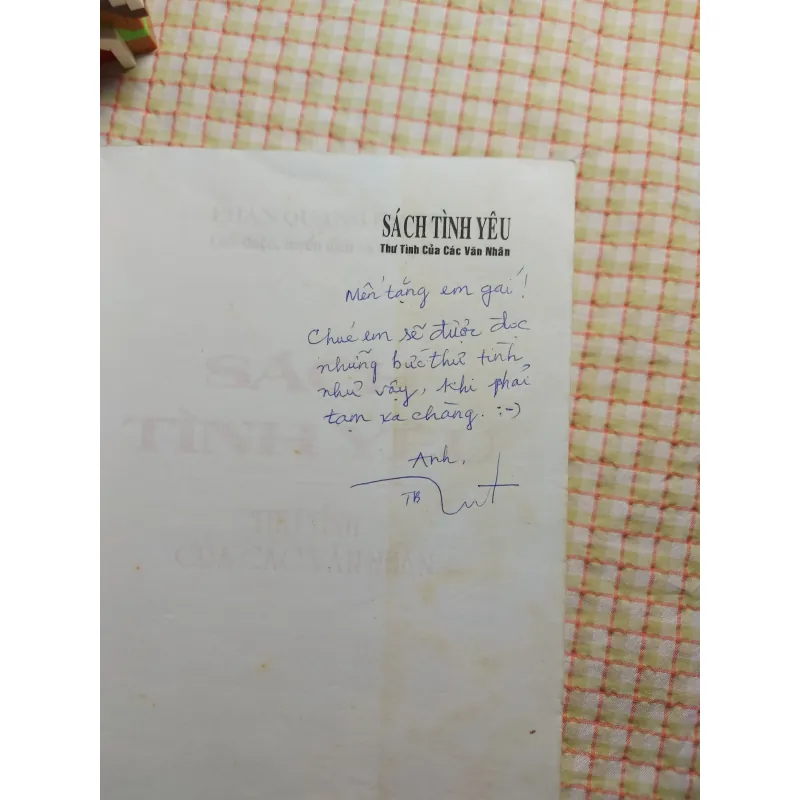 SÁCH TÌNH YÊU
Thư Tình Của Các Văn Nhân
Mến tặng em gái!
Chúc em sẽ được đọc
những bức thư tình
như vậy, khi phải
tạm xa chàng. :-)
Anh,
TB